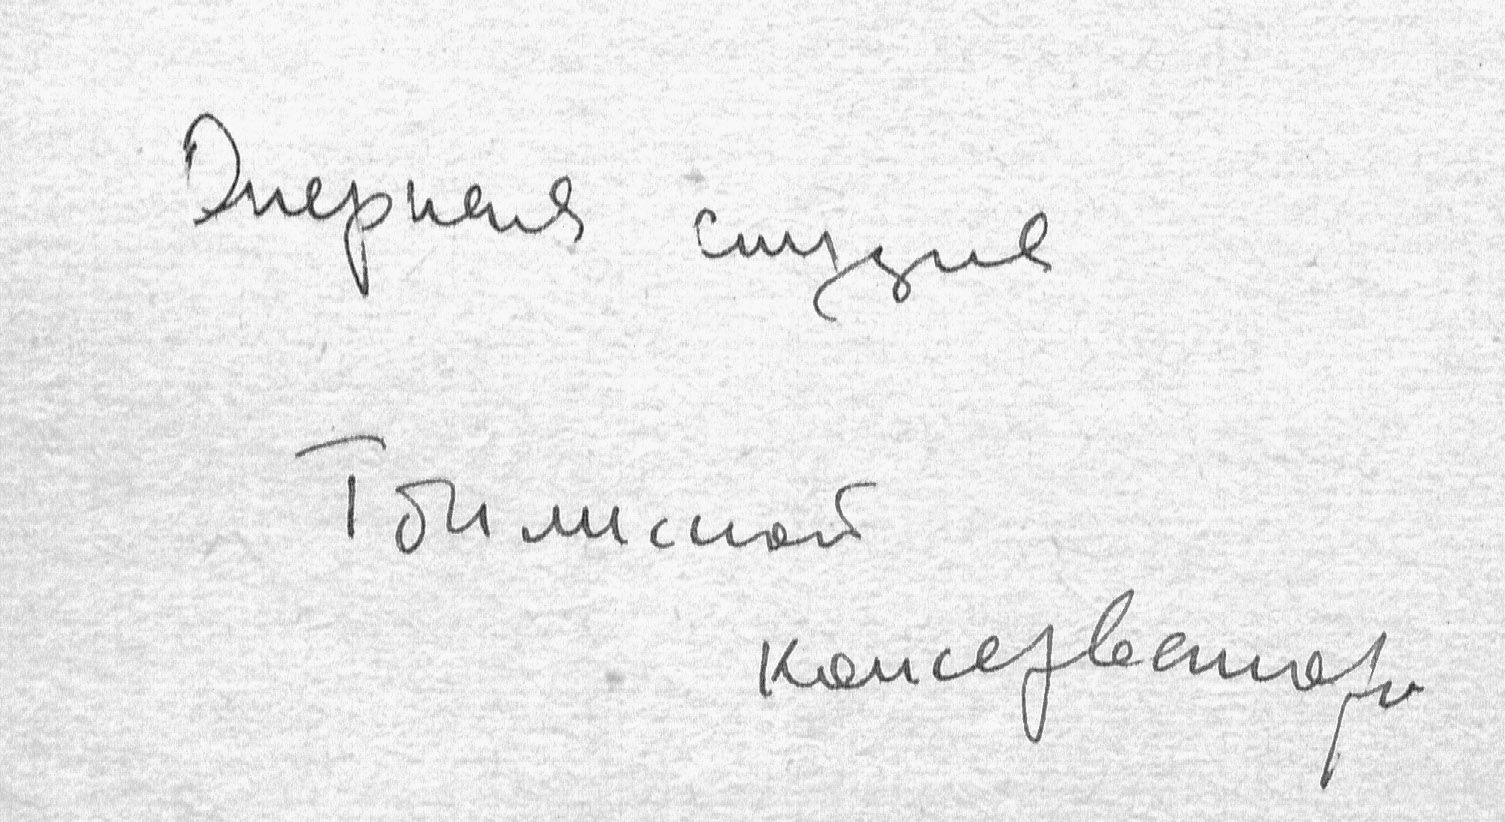 Оперная студия
Тбилисской
консерватор